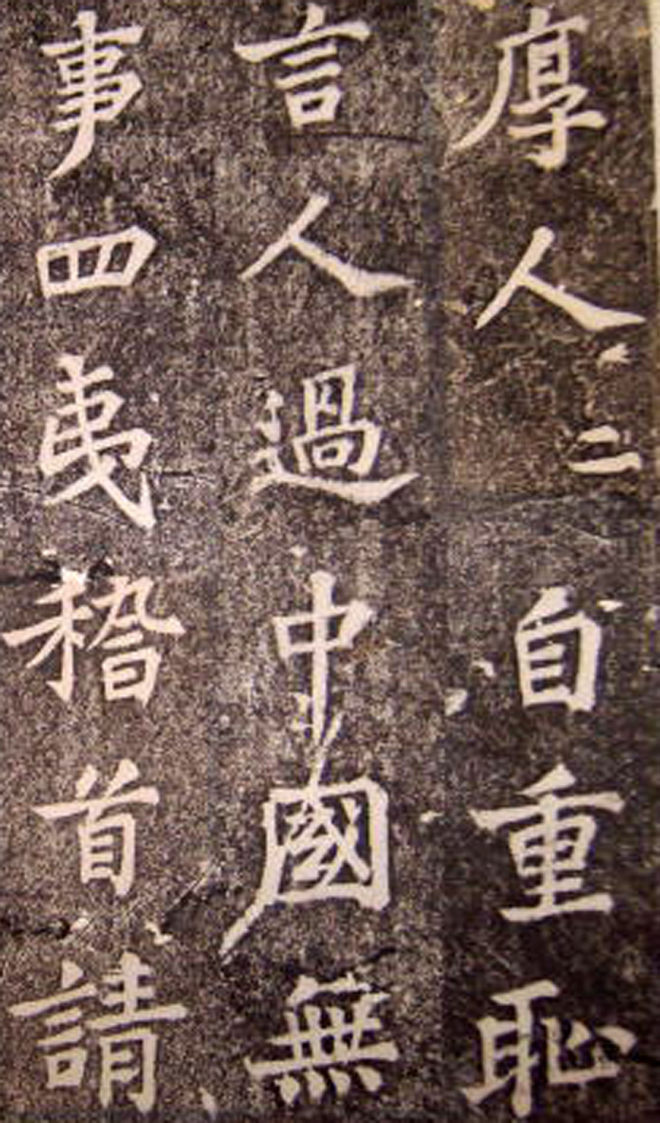 厚人二自重恥
言人過中國無
事四夷稽首請